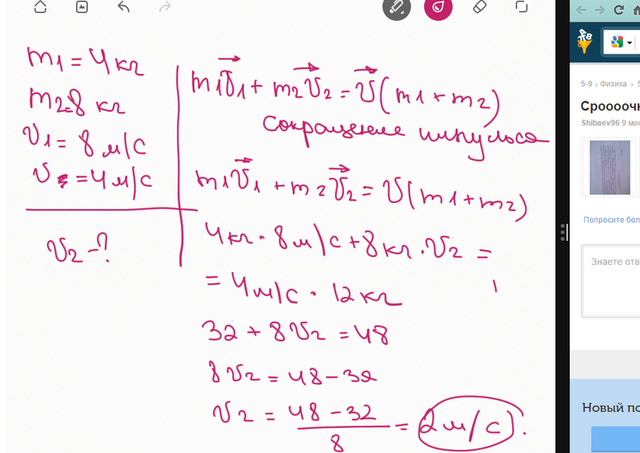 m1 = 4 кг
m2=8 кг
υ1 = 8 м/с
υ = 4 м/с
υ2 - ?
m1υ⃗1 + m2υ⃗2 = υ⃗(m1 + m2)
сокращение импульса
m1υ⃗1 + m2υ⃗2 = υ(m1 + m2)
4кг · 8м/с + 8кг · υ2 =
= 4м/с · 12кг
32 + 8υ2 = 48
8υ2 = 48 - 32
υ2 = 48 - 32 / 8 = 2м/с.
5-9 › Физика › 5
Сроооочн
Shibaev96 9 мин
Попросите бол
Знаете отв
Новый по